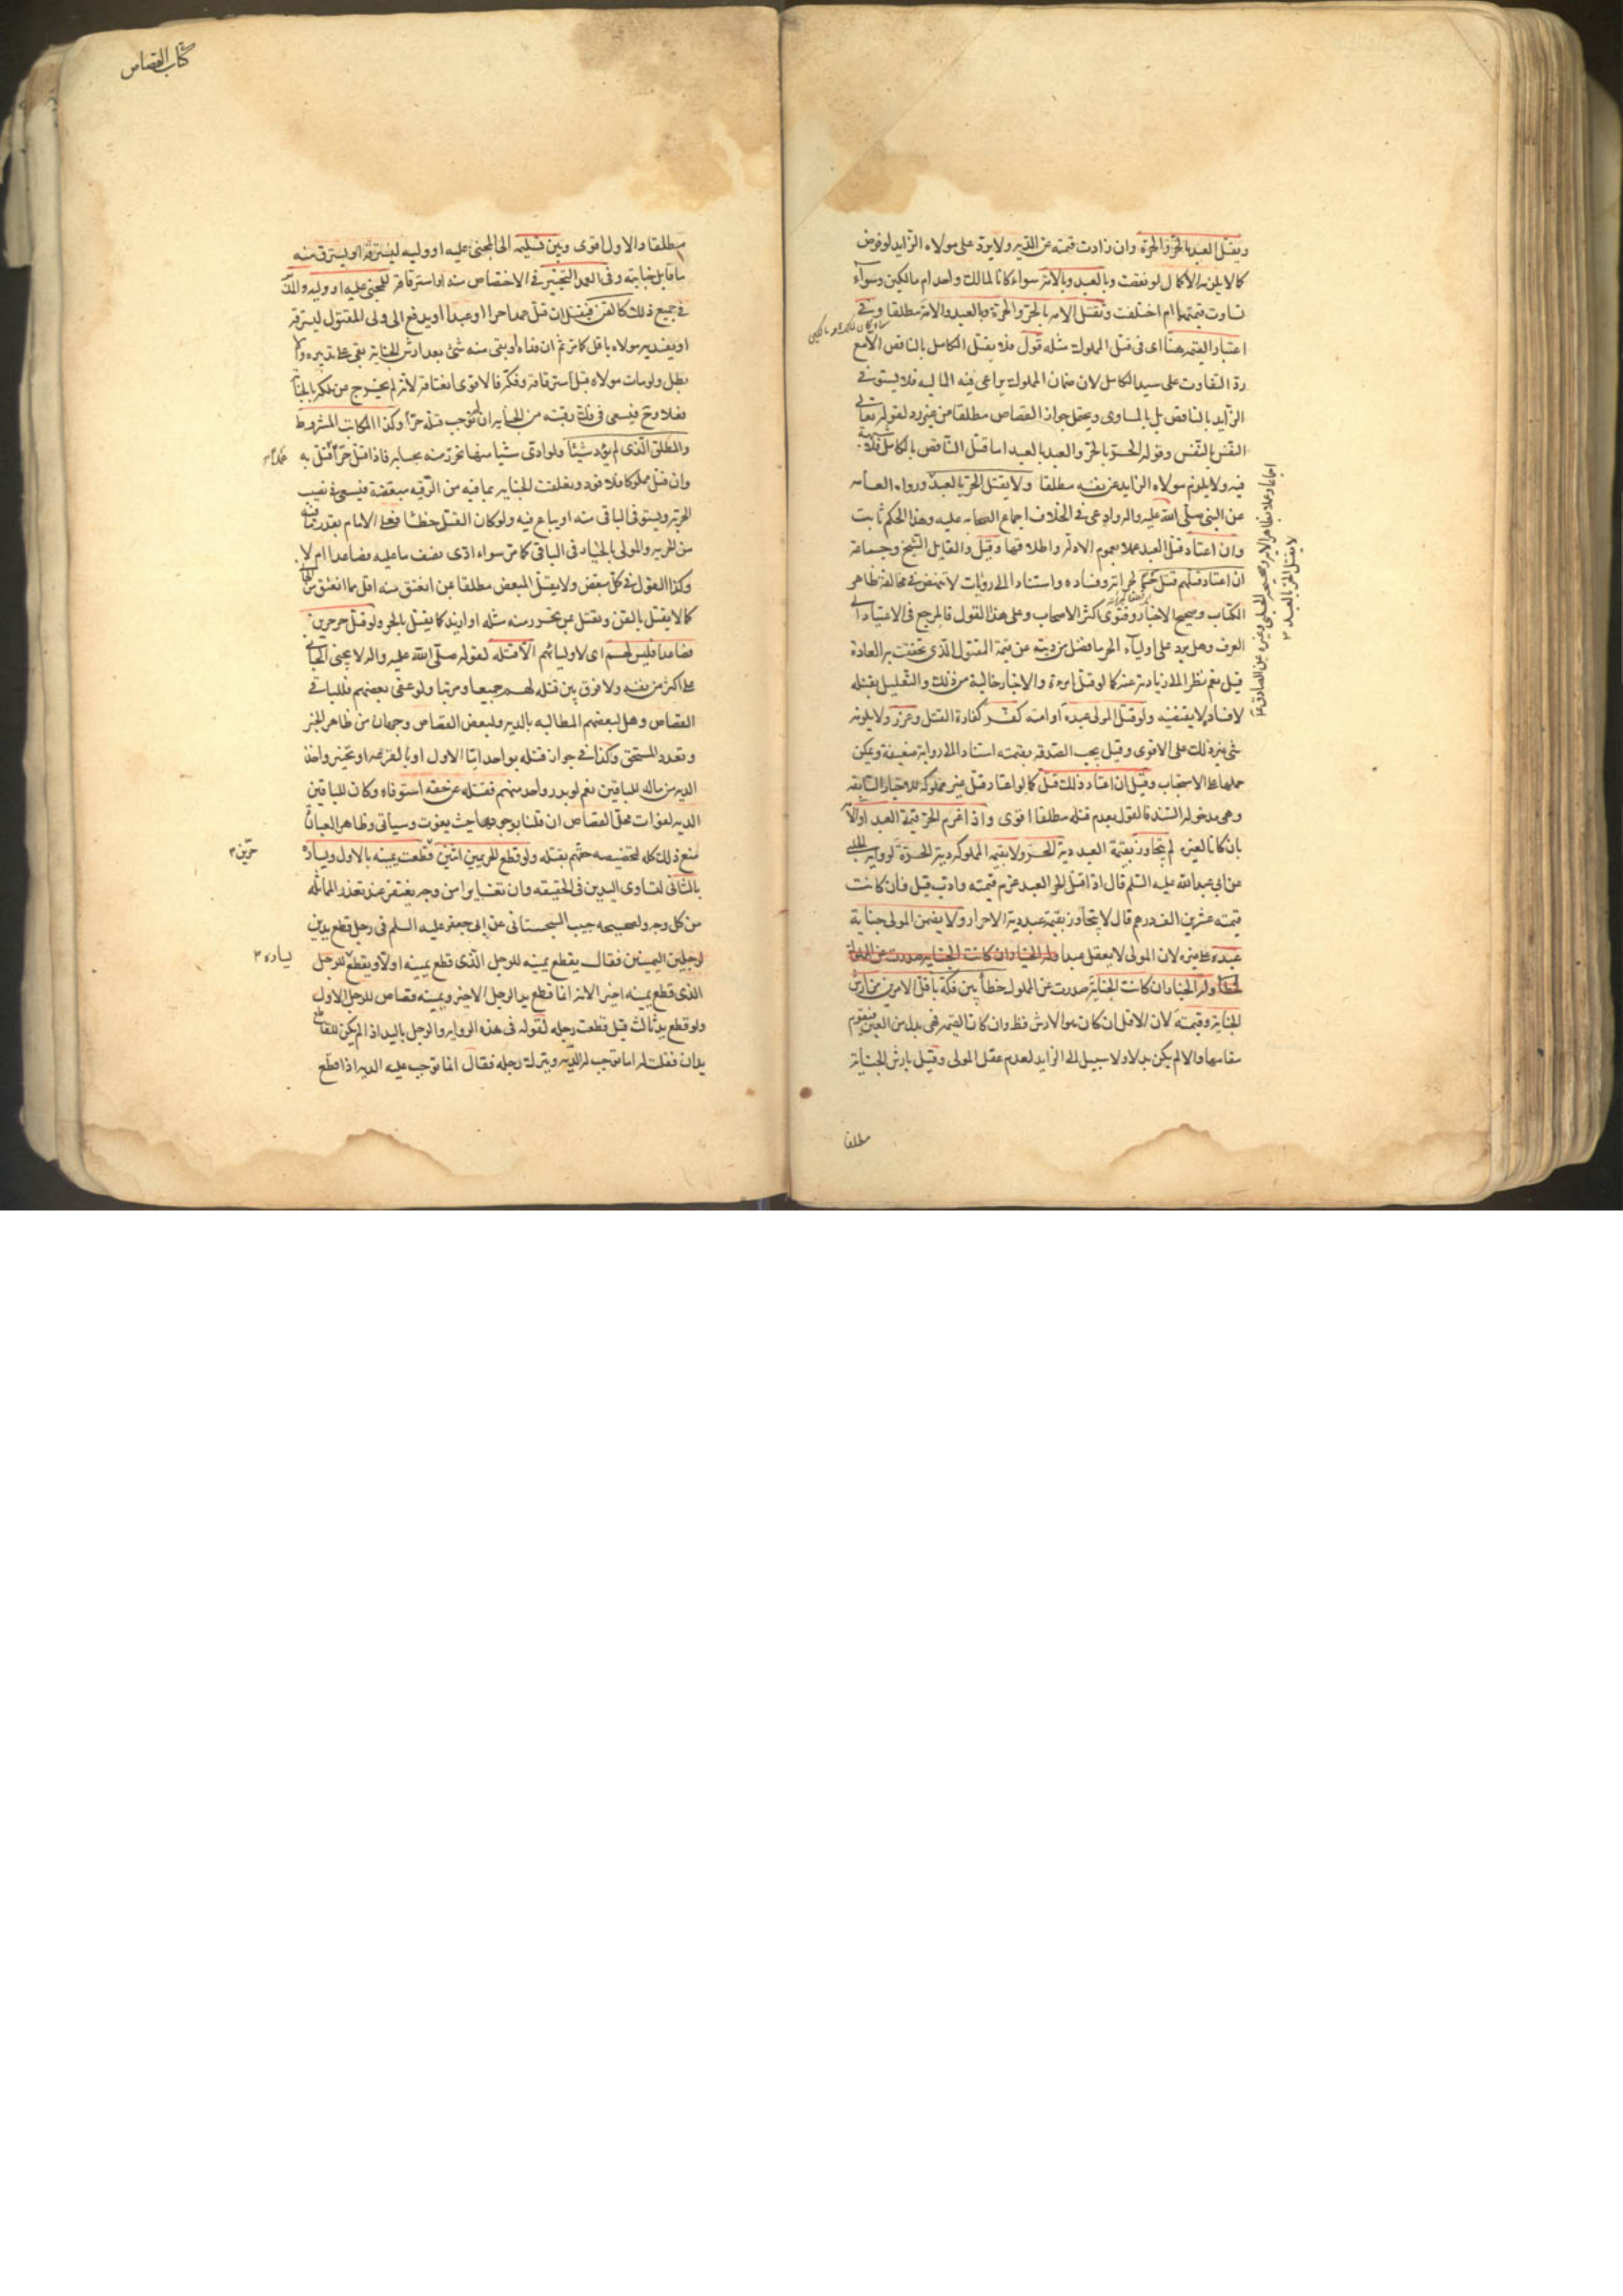 ويقتل العبد بالحر والحرة وان زادت قيمته عن الدية ولا يرد على مولاه الزايد لو فرض
كما لا يلزمه الاكمال لو نقصت وبالعبد وبالامة سواء كانا لمالك واحد ام مالكين وسواء
تساوت قيمتهما ام اختلفت وتقتل الامة بالحر والحرة وبالعبد والامة مطلقا وفي
اعتبار القيمة هنا اى فى قتل المملوك مثله قول فلا يقتل الكامل بالناقص الا مع
رد التفاوت على سيد الكامل لان ضمان المملوك يراعى فيه المالية فلا يستوفى
الزايد بالناقص بل بالمساوى ويحتمل جواز القصاص مطلقا من غير رد لقوله تعالى
النفس بالنفس وقوله الحر بالحر والعبد بالعبد اما قتل الناقص بالكامل فلا شبهة
فيه ولا يلزم مولاه الزايد عن نفسه مطلقا ولا يقتل الحر بالعبد ورواه العامه
عن النبى صلى الله عليه واله وادعى فى الخلاف اجماع الصحابه عليه وهذا الحكم ثابت
وان اعتاد قتل العبيد عملا بعموم الادلة واطلاقها وقيل والقايل الشيخ وجماعة
ان اعتاد قتلهم قتل حسما لجرأته وفساده واستنادا الى روايات لا تنهض فى مخالفة ظاهر
الكتاب وصحيح الاخبار وفتوى اكثر الاصحاب وعلى هذا القول فالمرجع فى الاعتياد الى
العرف وهل يرد على اولياء الحر ما فضل من ديته عن قيمة المقتول الذى تحققت به العادة
قيل نعم نظرا الى زيادته عنه كما لو قتل امرءة والاخبار خالية من ذلك والتعليل بقتله
لافساده لا يقتضيه ولو قتل المولى عبده او امته كفر كفارة القتل وعزر ولا يلزمه
شئ غير ذلك على الاقوى وقيل يجب الصدقه بقيمته استنادا الى رواية ضعيفة ويمكن
حملها على الاستحباب وقيل ان اعتاد ذلك قتل كما لو اعتاد قتل غير مملوكه للاخبار السابقه
وهى مدخولة السند فالقول بعدم قتله مطلقا اقوى واذا غرم الحر قيمة العبد او الامة
بان كانا لغيره لم يتجاوز بقيمة العبد دية الحر ولا بقيمة المملوكه دية الحرة لرواية الحلبى
عن ابى عبد الله عليه السلم قال اذا قتل الحر العبد غرم قيمته وادب قيل فان كانت
قيمته عشرين الف درهم قال لا يتجاوز بقيمة عبد دية الاحرار ولا يضمن المولى جناية
عبده على غيره لان المولى لا يعقل عبدا وله الخيار ان كانت الجناية صدرت عن المملوك
خطأ وله الخيار ان كانت الجناية صدرت عن المملوك خطأ بين فكه باقل الامرين من ارش
الجناية وقيمته لان الاقل ان كان هو الارش فظ وان كانت القيمة فهى بدل من العين فيقوم
مقامها والا لم يكن بدلا ولا سبيل الى الزايد لعدم عقل المولى وقيل بارش الجناية
مطلقا
اجماعا وعملا بظاهر الاية وصحيحة الحلبى وغيره عن الصادق ع
لا يقتل الحر بالعبد
كتاب القصاص
مطلقا والاول اقوى وبين تسليمه الى المجنى عليه او وليه ليسترقه او يسترق منه
ما قابل جنايته وفى العمد التخيير فى الاقتصاص منه او استرقاقه للمجنى عليه او وليه والمدبر
فى جميع ذلك كالقن فيقتل ان قتل عمدا حرا او عبدا او يدفع الى ولى المقتول ليسترقه
او يفديه مولاه باقل كما مر ثم ان فداه او بقى منه شئ بعد ارش الجناية بقى على تدبيره والا
بطل ولو مات مولاه قبل استرقاقه وفكه فالاقوى انعتاقه لانه لم يخرج عن ملكه بالجناية
فعلا وح فيسعى فى فك رقبته من الجناية ان لم توجب قتله حرا وكذا المكاتب المشروط
والمطلق الذى لم يؤد شيئا ولو ادى شيئا منها تحرر منه بحسابه فاذا قتل حرا قتل به
وان قتل مملوكا فلا قود وتعلقت الجناية بما فيه من الرقية مبعضة فيسعى فى نصيب
الحرية ويستوفى الباقى منه او يباع فيه ولو كان القتل خطأ فعلى الامام بقدر ما فيه
من الحرية والمولى بالخيار فى الباقى كما مر سواء ادى نصف ما عليه فصاعدا ام لا
وكذا القول فى كل مبعض ولا يقتل المبعض مطلقا بمن انعتق منه اقل مما انعتق من الجانى
كما لا يقتل بالقن ويقتل بمن تحرر منه مثله او ازيد كما يقتل بالحر ولو قتل حر حرين
فصاعدا فليس لهم اى لاوليائهم الا قتله لقوله صلى الله عليه واله لا يجنى الجانى
على اكثر من نفسه ولا فرق بين قتله لهم جميعا ومرتبا ولو عفى بعضهم فللباقى
القصاص وهل لبعضهم المطالبه بالدية ولبعض القصاص وجهان من ظاهر الخبر
وتعدد المستحق وكذا فى جواز قتله بواحد اما الاول او بالقرعه او تخييرا واخذ
الدية من ماله للباقين نعم لو بدر واحد منهم فقتله عن حقه استوفاه وكان للباقين
الدية لفوات محل القصاص ان قلنا بوجوبها حيث يفوت وسيأتى وظاهر العبارة
منع ذلك كله لتخصيصه حقهم بقتله ولو قطع الحر يمين اثنين قطعت يمينه بالاول ويساره
حرين
بالثانى لتساوى اليدين فى الحقيقه وان تغايرا من وجه يغتفر عند تعذر المماثله
من كل وجه ولصحيحه حبيب السجستانى عن ابى جعفر عليه السلم فى رجل قطع يدين
لرجلين اليمينين فقال يقطع يمينه للرجل الذى قطع يمينه اولا ويقطع للرجل
يساره
الذى قطع يمينه اخيرا لانه انما قطع يد الرجل الاخير ويمينه قصاص للرجل الاول
ولو قطع يد ثالث قيل قطعت رجله لقوله فى هذه الرواية والرجل باليد اذا لم يكن للقاطع
يدان فقلت له اما توجب له الدية وتترك رجله فقال انما توجب عليه الدية اذا قطع